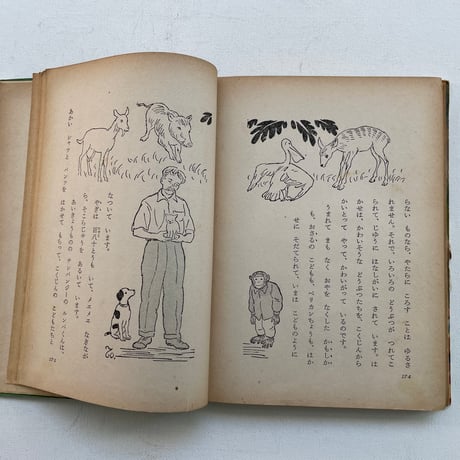 らない ものなら、やたらに ころす ことは ゆるさ
れません。それで、いろいろの どうぶつが つれてこ
られて、じゆうに はなしがいに されて います。は
かせは、かわいそうな どうぶつたちを、こくじんから
かいとって やって、かわいがって いるのです。
うまれて まも なく おやを なくした かもしか
も、おさるの こどもも、ペリカンちょうも、はか
せに そだてられて、いまは こどものように
174
なついて います。
やぎは 百八十とうも いて、メエメエ なきなが
ら、そこらじゅうを あるいて います。
あいきょうものの チンパンジーの ルンバくんは、
あかい シャツと パンツを はかせて もらって、こくじんの こどもたちと